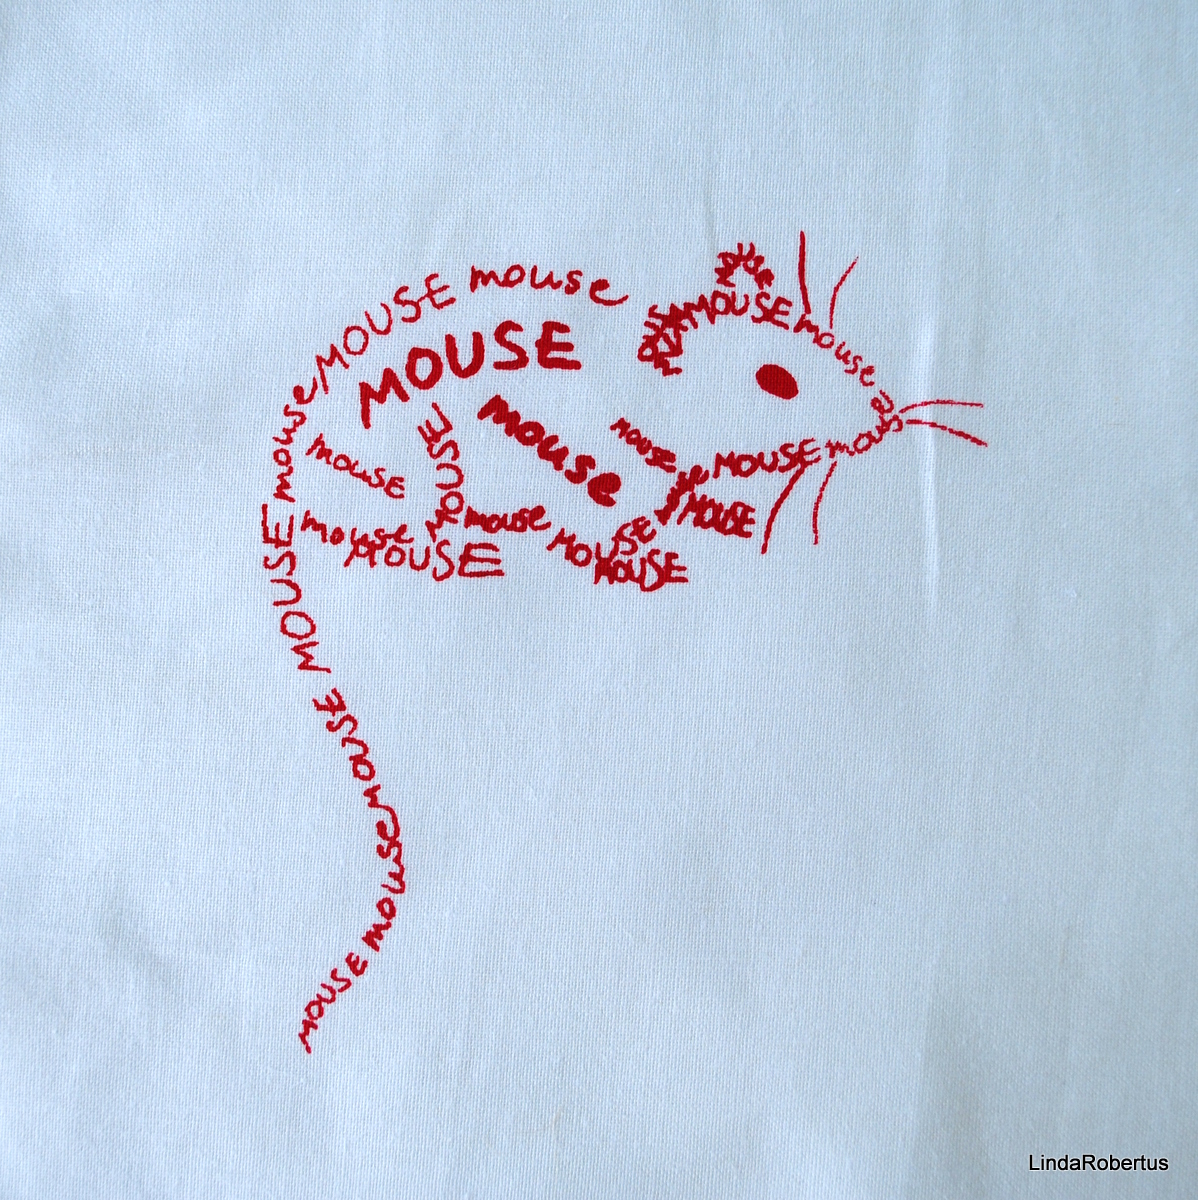 mouse
MOUSE
MOUSE
mouse
MOUSE
mouse
mouse
MOUSE
mouse
mouse
MOUSE
mouse
MOUSE
mouse
MOUSE
mouse
mouse
MOUSE
mouse
MOUSE
MOUSE
mouse
MOUSE
MOUSE
MOUSE
MOUSE
mouse
MOUSE
LindaRobertus